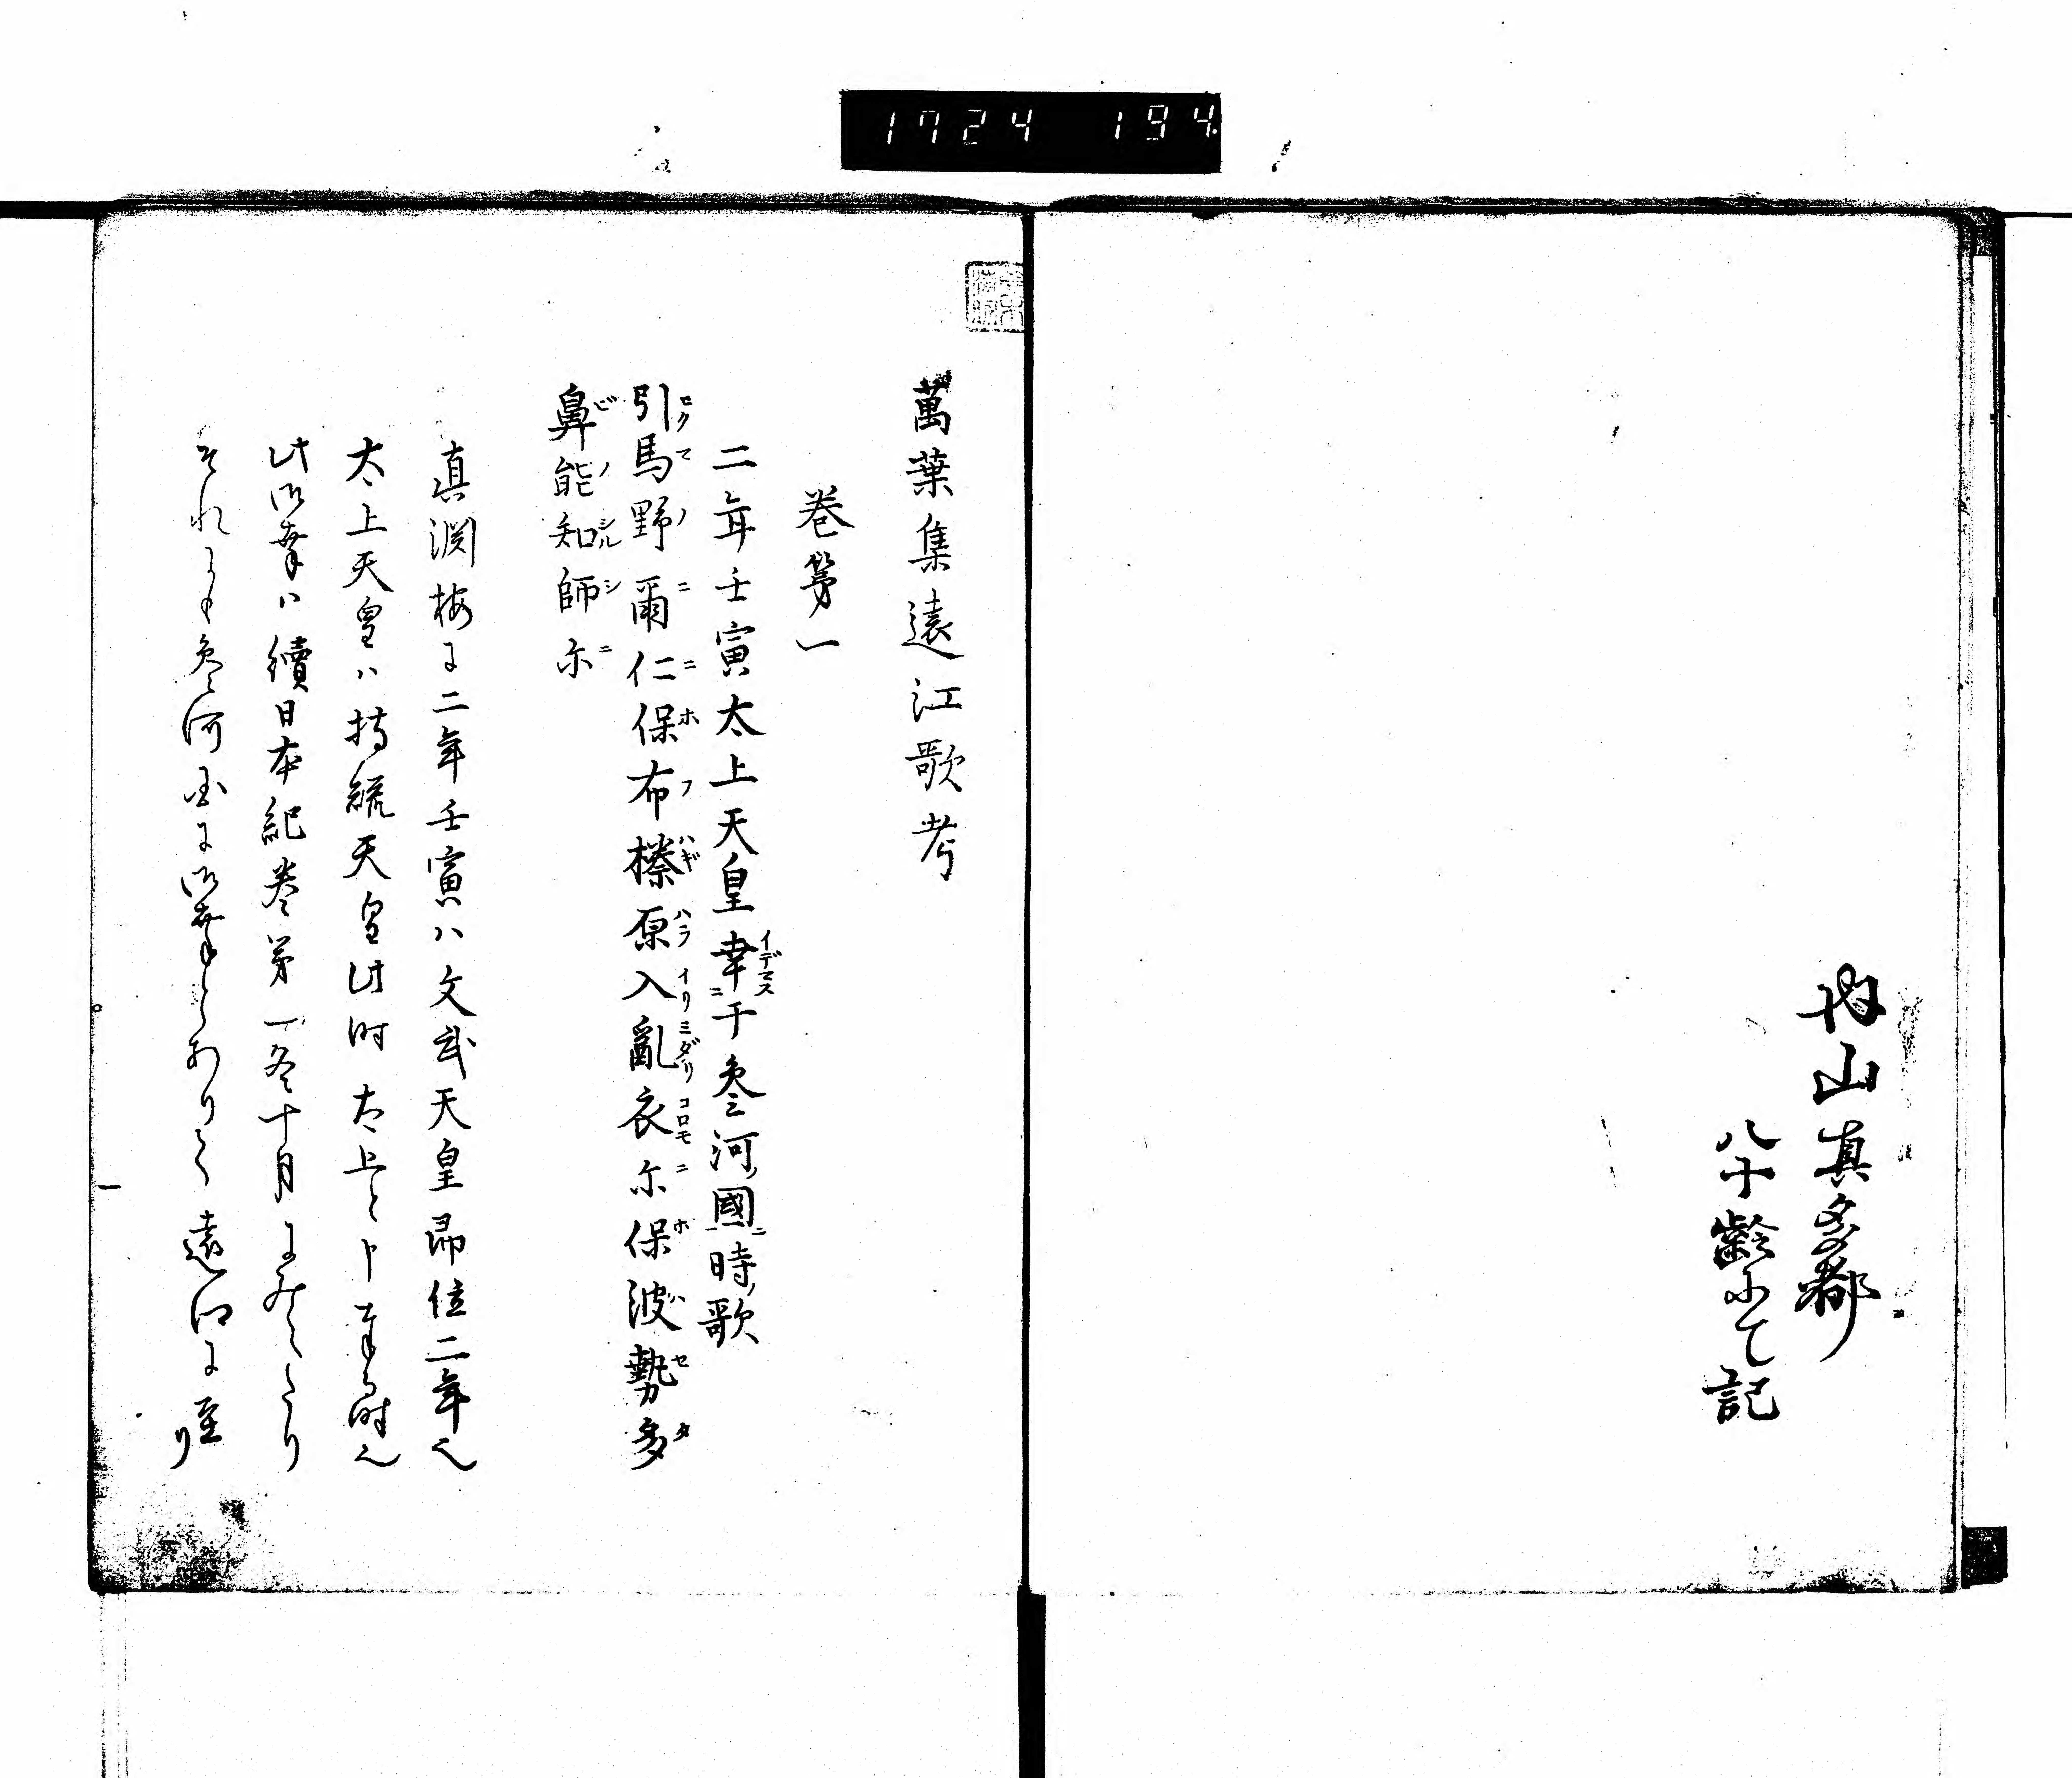 1724 194.
内山真多都
八十齢にて記
萬葉集遠江歌考
巻第一
二年壬寅太上天皇幸于参河國時歌
引馬野爾仁保布榛原入亂衣尓保波勢多
鼻能知師尓
真淵按に二年壬寅ハ文武天皇即位二年也
太上天皇ハ持統天皇此時太上と申奉る時也
此御幸ハ續日本紀巻第一冬十月にみえたり
それにも参河国に御幸とありて遠江に至り